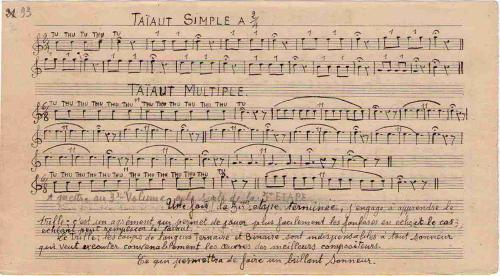 93
TAÏAUT SIMPLE A 2/4
TU THU TU THU TU
TAÏAUT MULTIPLE.
TU THU THU THU THU THU THU THU THU THU TU
TU THU THU THU THU THU THU THU TU
au 3e Volume
Une fois la 3e étape terminée, j'engage à apprendre le
trille: c'est un agrément qui permet de jouer plus facilement les fanfares en écho et le cas
échéant peut remplacer le taïaut.
Le trille, les coups de langue Ternaire et Binaire sont indispensables à tout sonneur
qui veut exécuter convenablement les œuvres des meilleurs compositeurs.
Ce qui permettra de faire un brillant sonneur.